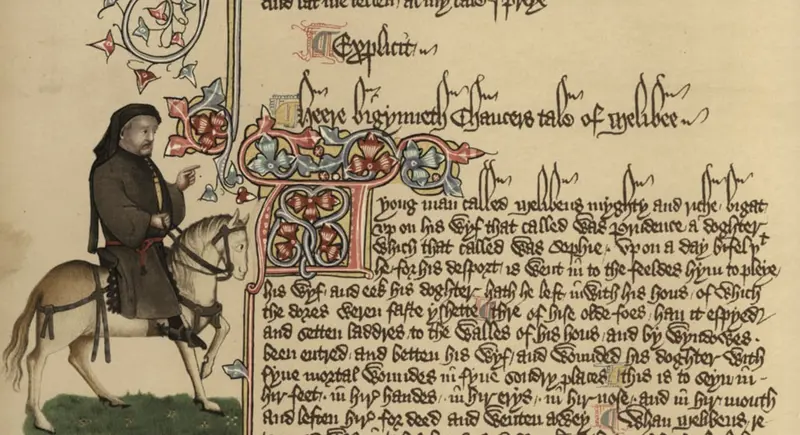 and lat me tellen al my tale I preye
Explicit
Heere bigynneth Chaucers tale of Melibee
A yong man called Melibeus myghty and riche bigat
up on his wyf that called was Prudence a doghter
which that called was Sophie. Up on a day bifel þt
he for his desport is went in to the feeldes hym to pleye
his wyf and eek his doghter hath he left in with his hous of which
the dores weren faste yshette thre of hise olde foes han it espyed
and setten laddres to the walles of his hous and by wyndowes
been entred and betten his wyf and wounded his doghter with
fyue mortal woundes in fyue sondry places this is to seyn in
hir feet in hir handes in hir erys in hir nose and in hir mouth
and leften hir for deed and wenten awey Whan Melibeus re